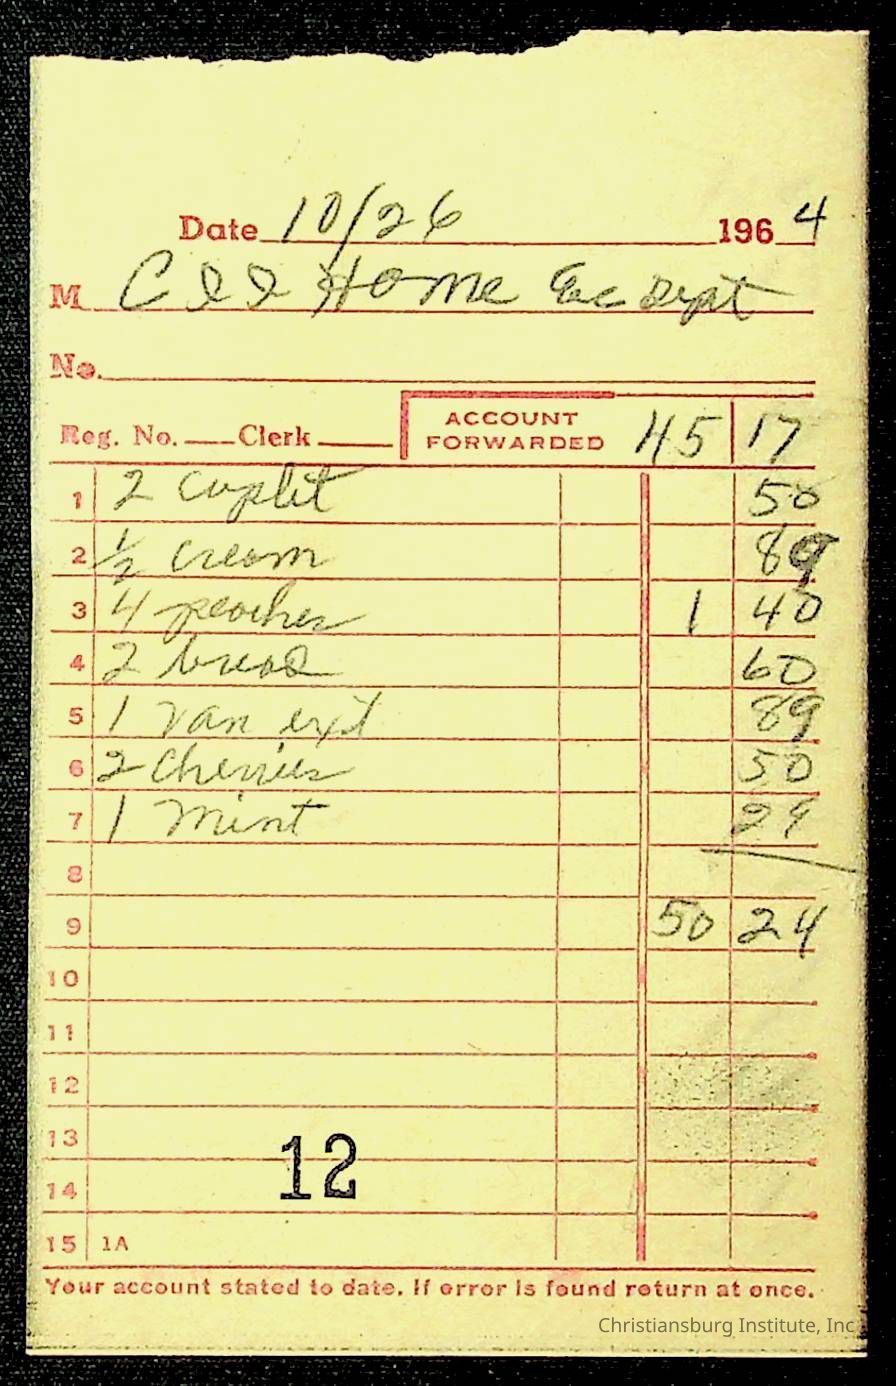 Date 10/26 1964
M Home Ec Dept
No.
Reg. No. Clerk ACCOUNT FORWARDED 45 17
1 2 50
2 1/2 cream 89
3 4 peaches 1 40
4 2 bread 60
5 1 van ext 89
6 2 Cherries 50
7 1 mint 29
8
9 50 24
10
11
12
13
12
14
15 1A
Your account stated to date. If error is found return at once.
Christiansburg Institute, Inc